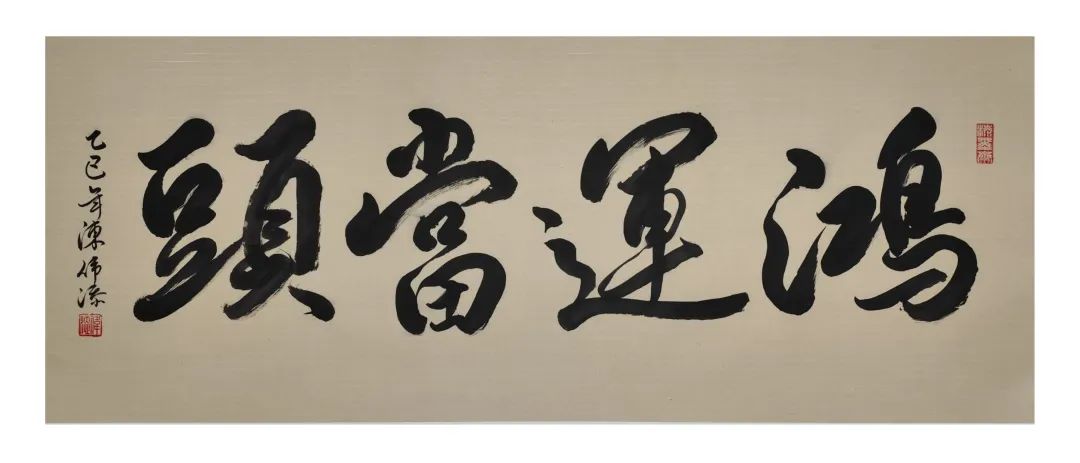 鴻運當頭
乙巳年陳伟